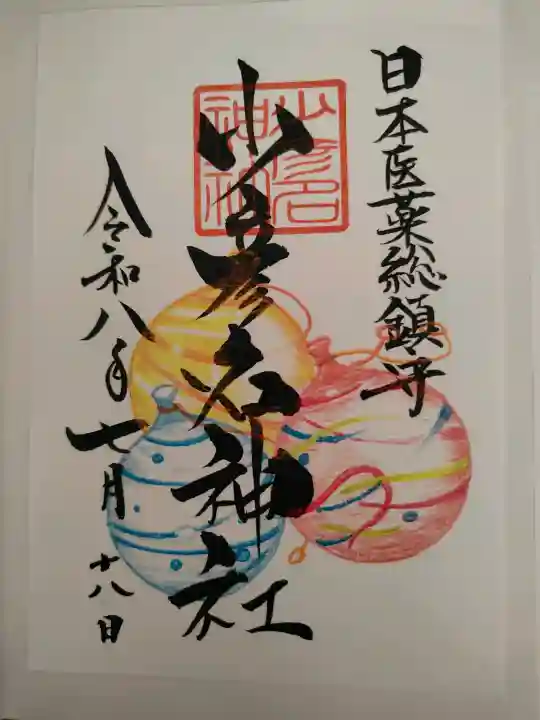 日本医薬総鎮守
少彦名神社
少彦名
神社
令和八年七月十八日